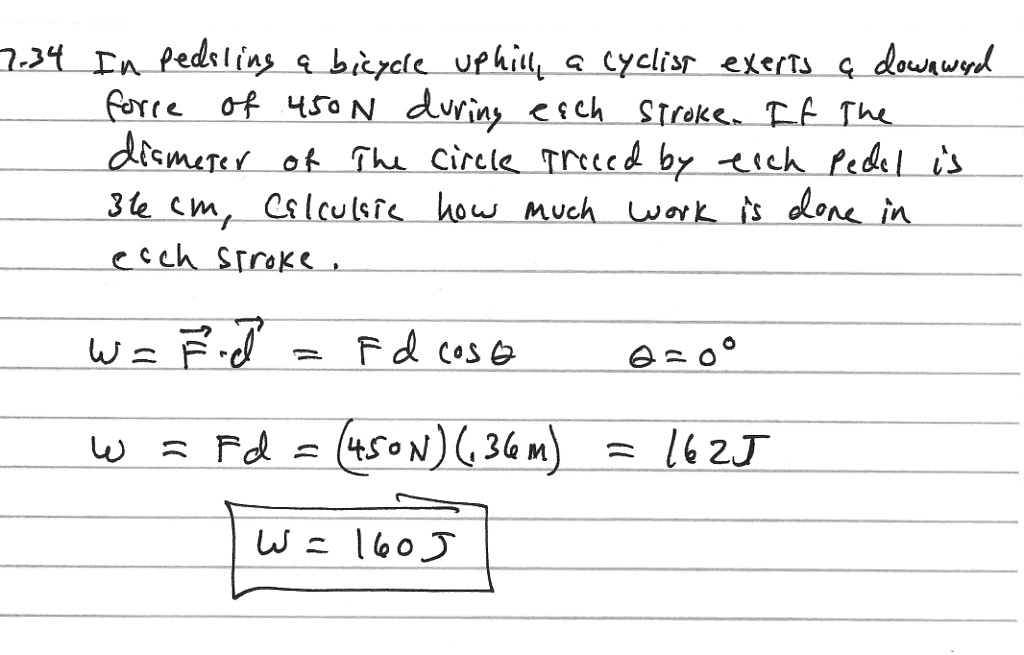 7.34 In pedaling a bicycle uphill, a cyclist exerts a downward
force of 450 N during each stroke. If the
diameter of the circle traced by each pedal is
36 cm, calculate how much work is done in
each stroke.
W = F⃗·d⃗ = Fd cosθ θ = 0°
W = Fd = (450N)(.36m) = 162J
W = 160J